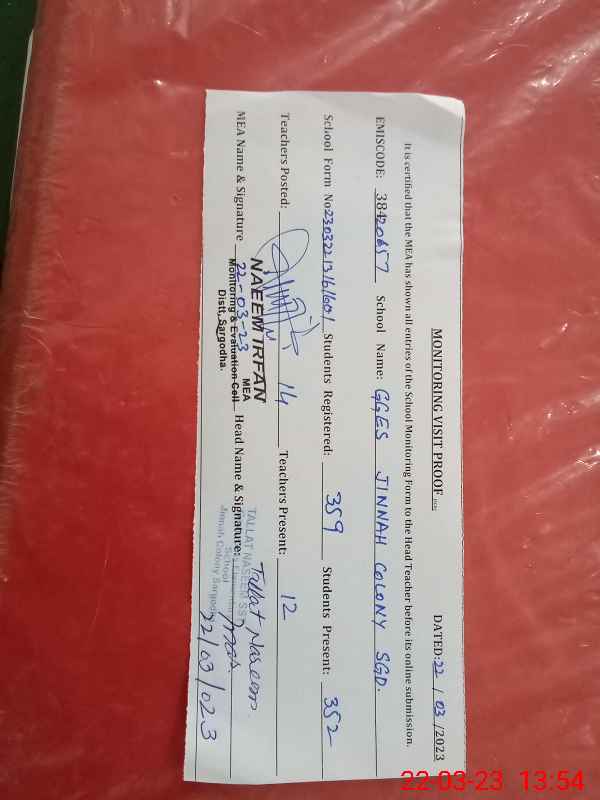 MONITORING VISIT PROOF
DATED: 22 / 03 /2023
It is certified that the MEA has shown all entries of the School Monitoring Form to the Head Teacher before its online submission.
EMISCODE: 38420657 School Name: GGES JINNAH COLONY SGD.
School Form No Students Registered: 359 Students Present: 352
Teachers Posted: 14 Teachers Present: 12
MEA Name & Signature 22-03-23 Head Name & Signature: Tallat Naseem
NAEEM IRFAN
MEA
Monitoring & Evaluation Cell
Distt, Sargodha.
TALLAT NASEEM SST
School
Jinnah Colony Sargodha
22/03/023
22-03-23 13:54